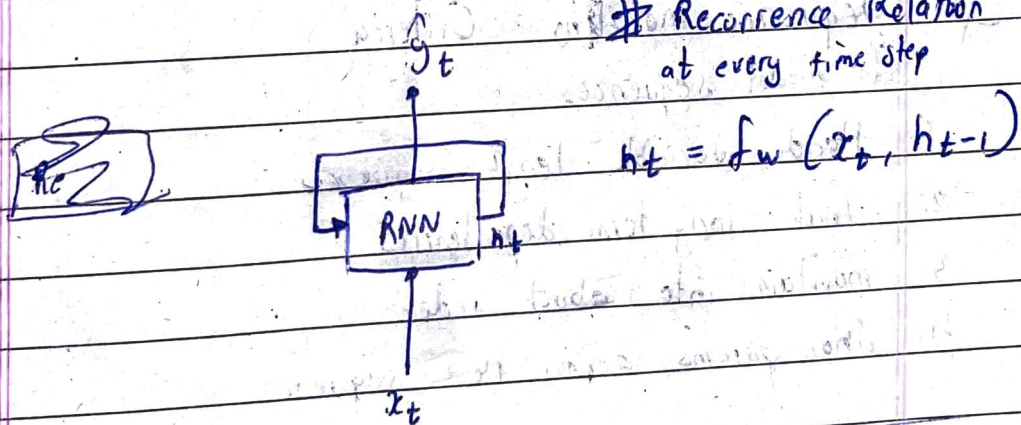 # Recurrence Relation
at every time step
ŷt
ht = fw (xt, ht-1)
RNN
ht
xt